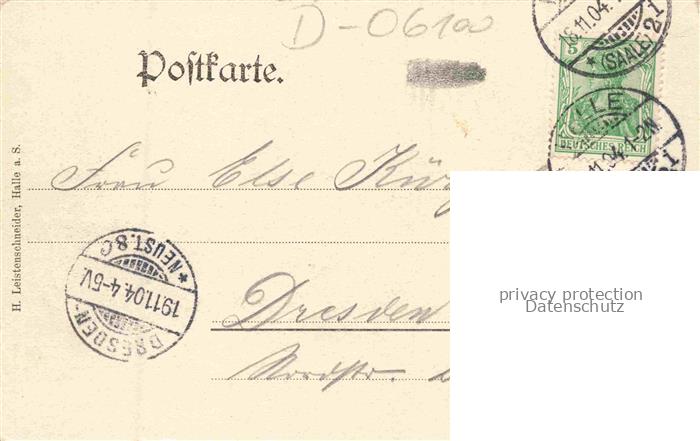 D-06100
18.11.04.
(SAALE) 2.i
Postkarte.
5
DEUTSCHES REICH
HALLE
11.04. 1-2N
H. Leistenschneider, Halle a. S.
Frau Else
DRESDEN-
19.11.04.4-5V.
*NEUST.8C
Dresden
Nordstr.
privacy protection
Datenschutz